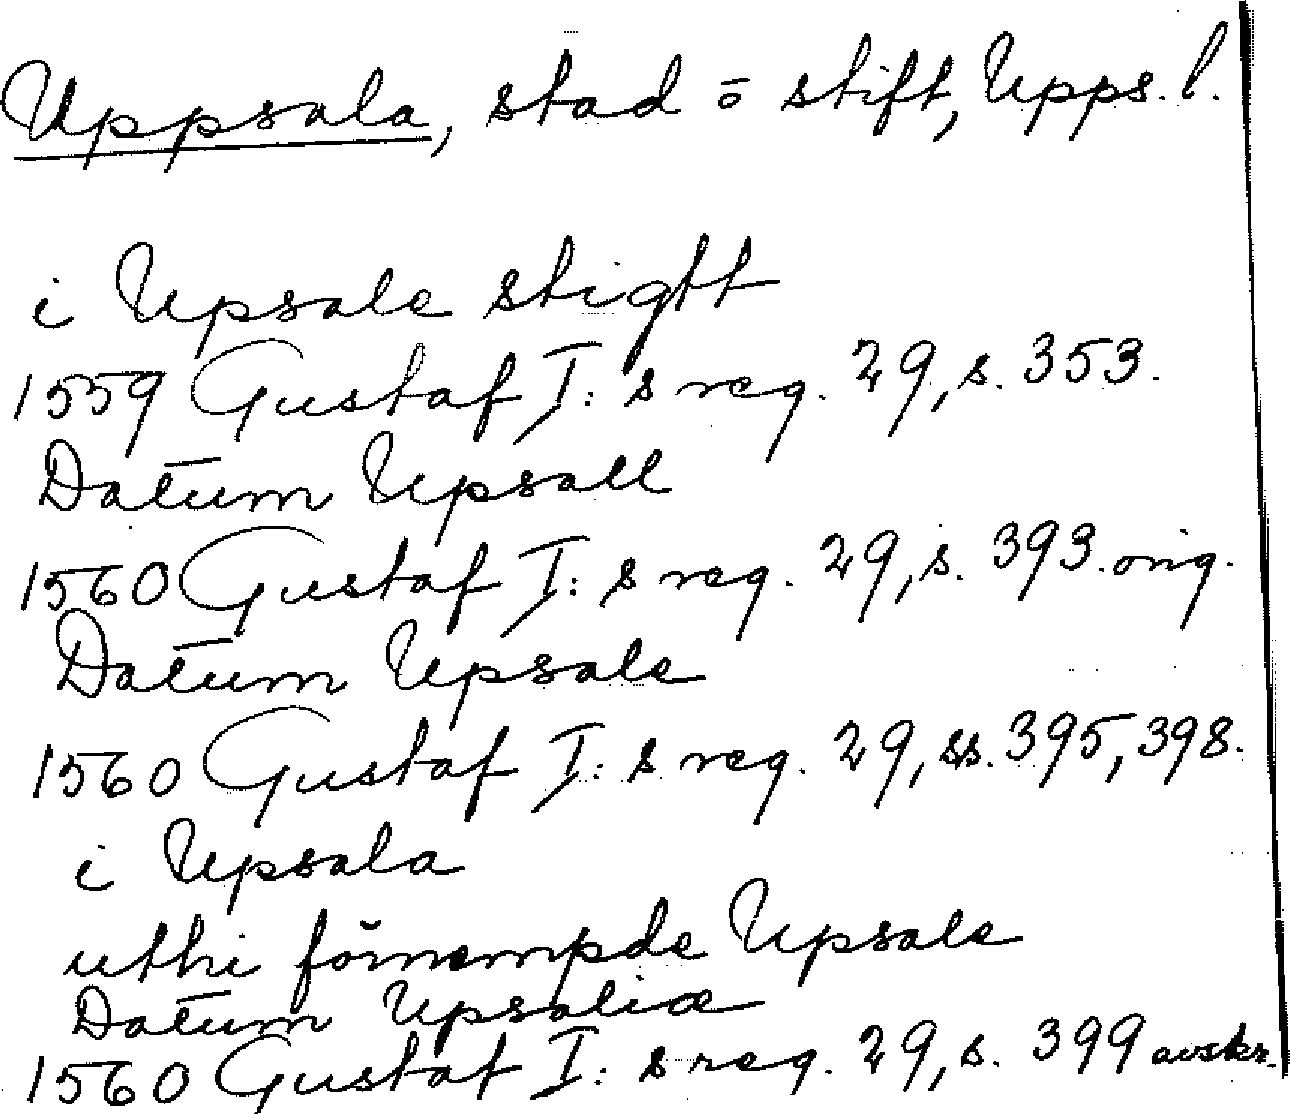 Uppsala, stad o stift, Upps. l.
i Upsale stigtt
1559 Gustaf I: s reg. 29, s. 353.
Datum Upsall
1560 Gustaf I: s reg. 29, s. 393. orig.
Datum Upsale
1560 Gustaf I: s reg. 29, ss. 395, 398.
i Upsala
uthi förnempde Upsale
Datum Upsaliæ
1560 Gustaf I: s reg. 29, s. 399 avskr.